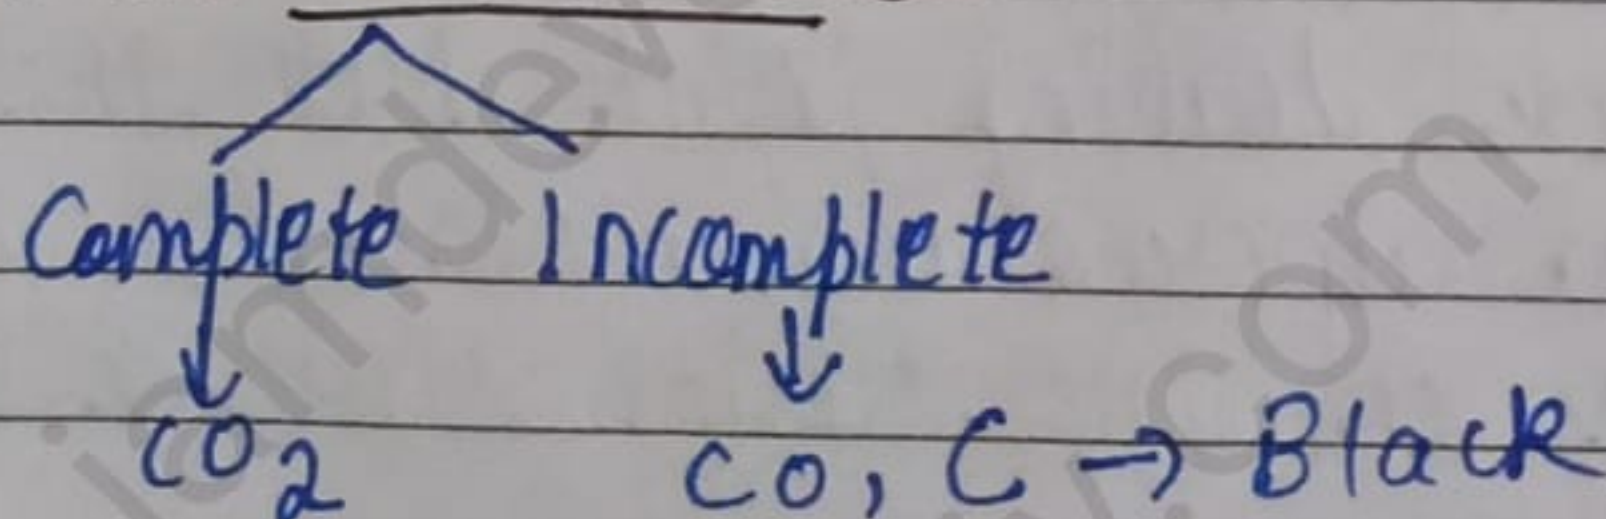 Complete Incomplete
↓ ↓
CO₂ CO, C → Black